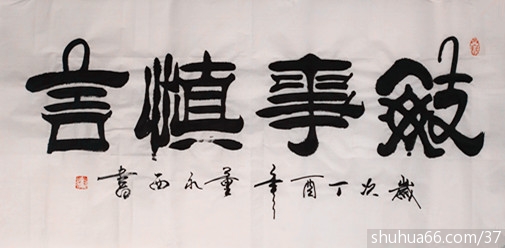 敏事慎言
歲次丁酉年董永西書
shuhua66.com/37